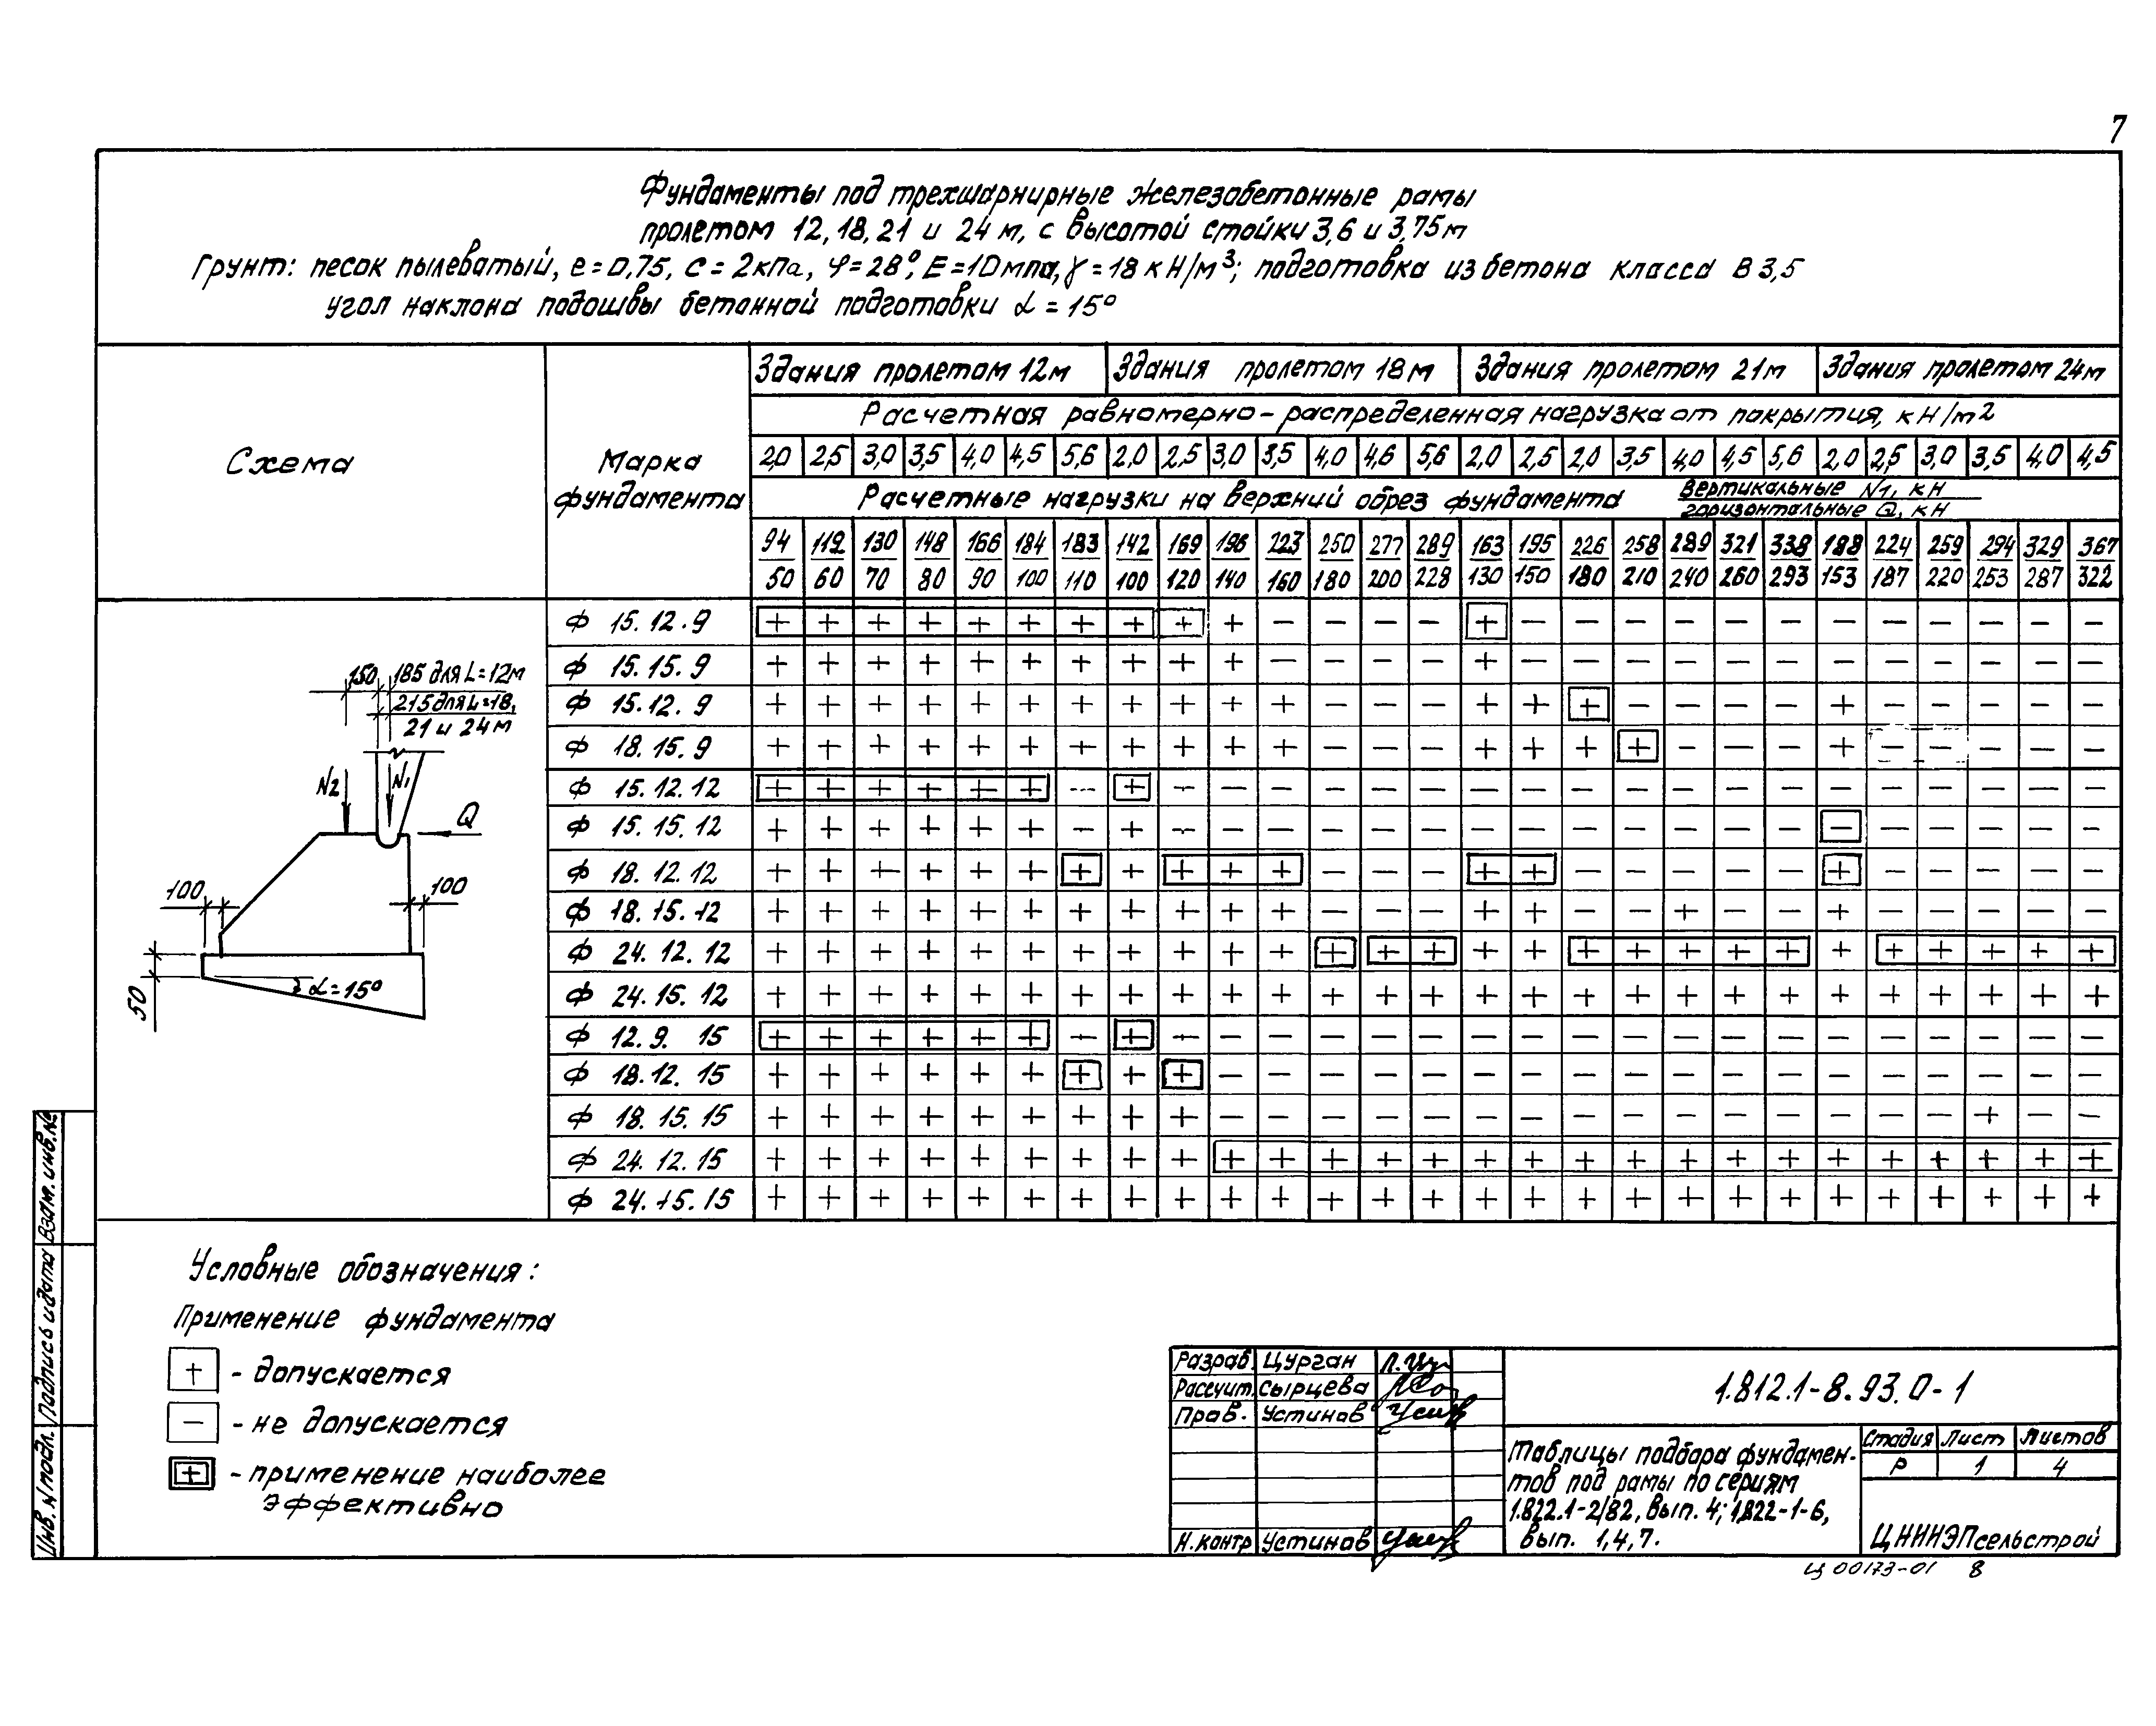 7
Фундаменты под трехшарнирные железобетонные рамы
пролетом 12, 18, 21 и 24 м, с высотой стойки 3,6 и 3,75м
Грунт: песок пылеватый, е=0,75, С=2кПа, φ=28°, Е=10мпа, γ=18 кН/м³; подготовка из бетона класса В 3,5
угол наклона подошвы бетонной подготовки α = 15°
Схема
Марка фундамента
Здания пролетом 12м Здания пролетом 18м Здания пролетом 21м Здания пролетом 24м
Расчетная равномерно-распределенная нагрузка от покрытия, кН/м2
2,0 2,5 3,0 3,5 4,0 4,5 5,6 2,0 2,5 3,0 3,5 4,0 4,6 5,6 2,0 2,5 2,0 3,5 4,0 4,5 5,6 2,0 2,5 3,0 3,5 4,0 4,5
Расчетные нагрузки на верхний обрез фундамента вертикальные N1, кН
горизонтальные Q, кН
94 112 130 148 166 184 183 142 169 196 223 250 277 289 163 195 226 258 289 321 338 188 224 259 294 329 367
50 60 70 80 90 100 110 100 120 140 160 180 200 228 130 150 180 210 240 260 293 153 187 220 253 287 322
Ф 15.12.9 + + + + + + + + + + - - - - + - - - - - - - - - - - -
Ф 15.15.9 + + + + + + + + + + - - - - + - - - - - - - - - - - -
Ф 15.12.9 + + + + + + + + + + + - - - + + + - - - - + - - - - -
Ф 18.15.9 + + + + + + + + + + + - - - + + + + - - - + - - - - -
Ф 15.12.12 + + + + + + - + - - - - - - - - - - - - - - - - - - -
Ф 15.15.12 + + + + + + - + - - - - - - - - - - - - - - - - - - -
Ф 18.12.12 + + + + + + + + + + + - - - + + - - - - - + - - - - -
Ф 18.15.12 + + + + + + + + + + + - - - + + - - + - - + - - - - -
Ф 24.12.12 + + + + + + + + + + + + + + + + + + + + + + + + + + +
Ф 24.15.12 + + + + + + + + + + + + + + + + + + + + + + + + + + +
Ф 12.9.15 + + + + + + - + - - - - - - - - - - - - - - - - - - -
Ф 18.12.15 + + + + + + + + + - - - - - - - - - - - - - - - - - -
Ф 18.15.15 + + + + + + + + + - - - - - - - - - - - - - - - + - -
Ф 24.12.15 + + + + + + + + + + + + + + + + + + + + + + + + + + +
Ф 24.15.15 + + + + + + + + + + + + + + + + + + + + + + + + + + +
150 185 для L=12м
215 для L=18,
21 и 24 м
N2 N1
Q
100 100
50
α=15°
Условные обозначения:
Применение фундамента
+ - допускается
− - не допускается
+ - применение наиболее
эффективно
Взам. инв.№
Подпись и дата
Инв. № подл.
Разраб. Цурган
Рассчит. Сырцева
Пров. Устинов
Н.контр Устинов
1.812.1-8.93.0-1
Таблицы подбора фундамен-
тов под рамы по сериям
1.822.1-2/82, вып. 4; 1.822-1-6,
вып. 1,4,7.
Стадия Лист Листов
Р 1 4
ЦНИИЭПсельстрой
Ц 00173-01 8